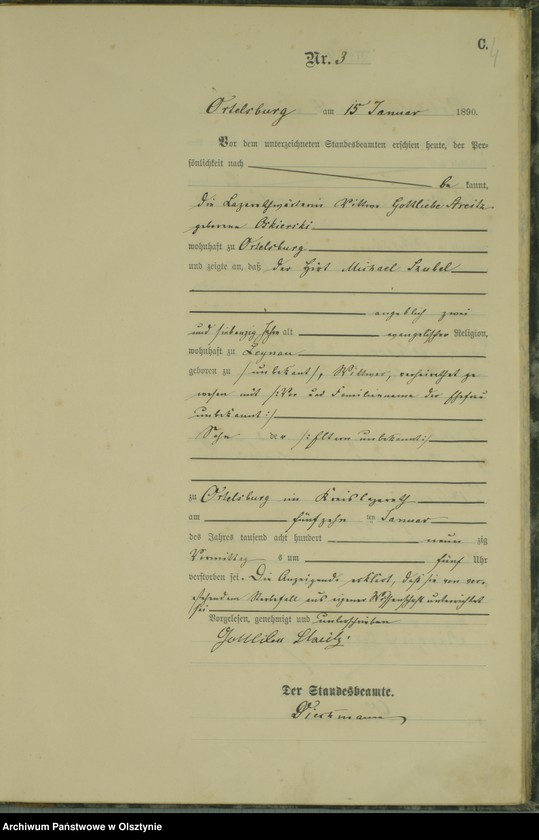 C. 4
Nr. 3
Ortelsburg am 15 Januar 1890.
Vor dem unterzeichneten Standesbeamten erschien heute, der Per-
sönlichkeit nach
be kannt,
die Lazarethwärterin Wittwe Gottliebe
geborene
wohnhaft zu Ortelsburg
und zeigte an, daß der Hirt Michael
angeblich zwei
und siebenzig Jahre alt evangelischer Religion,
wohnhaft zu
geboren zu /:unbekannt:/, Wittwer, verheirathet ge
wesen mit /:Vor und Familienname der Ehefrau
unbekannt:/
Sohn der /:Eltern unbekannt:/
zu Ortelsburg im Kreislazareth
am fünfzehn ten Januar
des Jahres tausend acht hundert neun zig
Vormittag s um fünf Uhr
verstorben sei. Die Anzeigende erklärt, daß sie von vor-
stehendem Sterbefall aus eigener Wissenschaft unterrichtet
sei
Vorgelesen, genehmigt und unterschrieben
Der Standesbeamte.
Archiwum Państwowe w Olsztynie